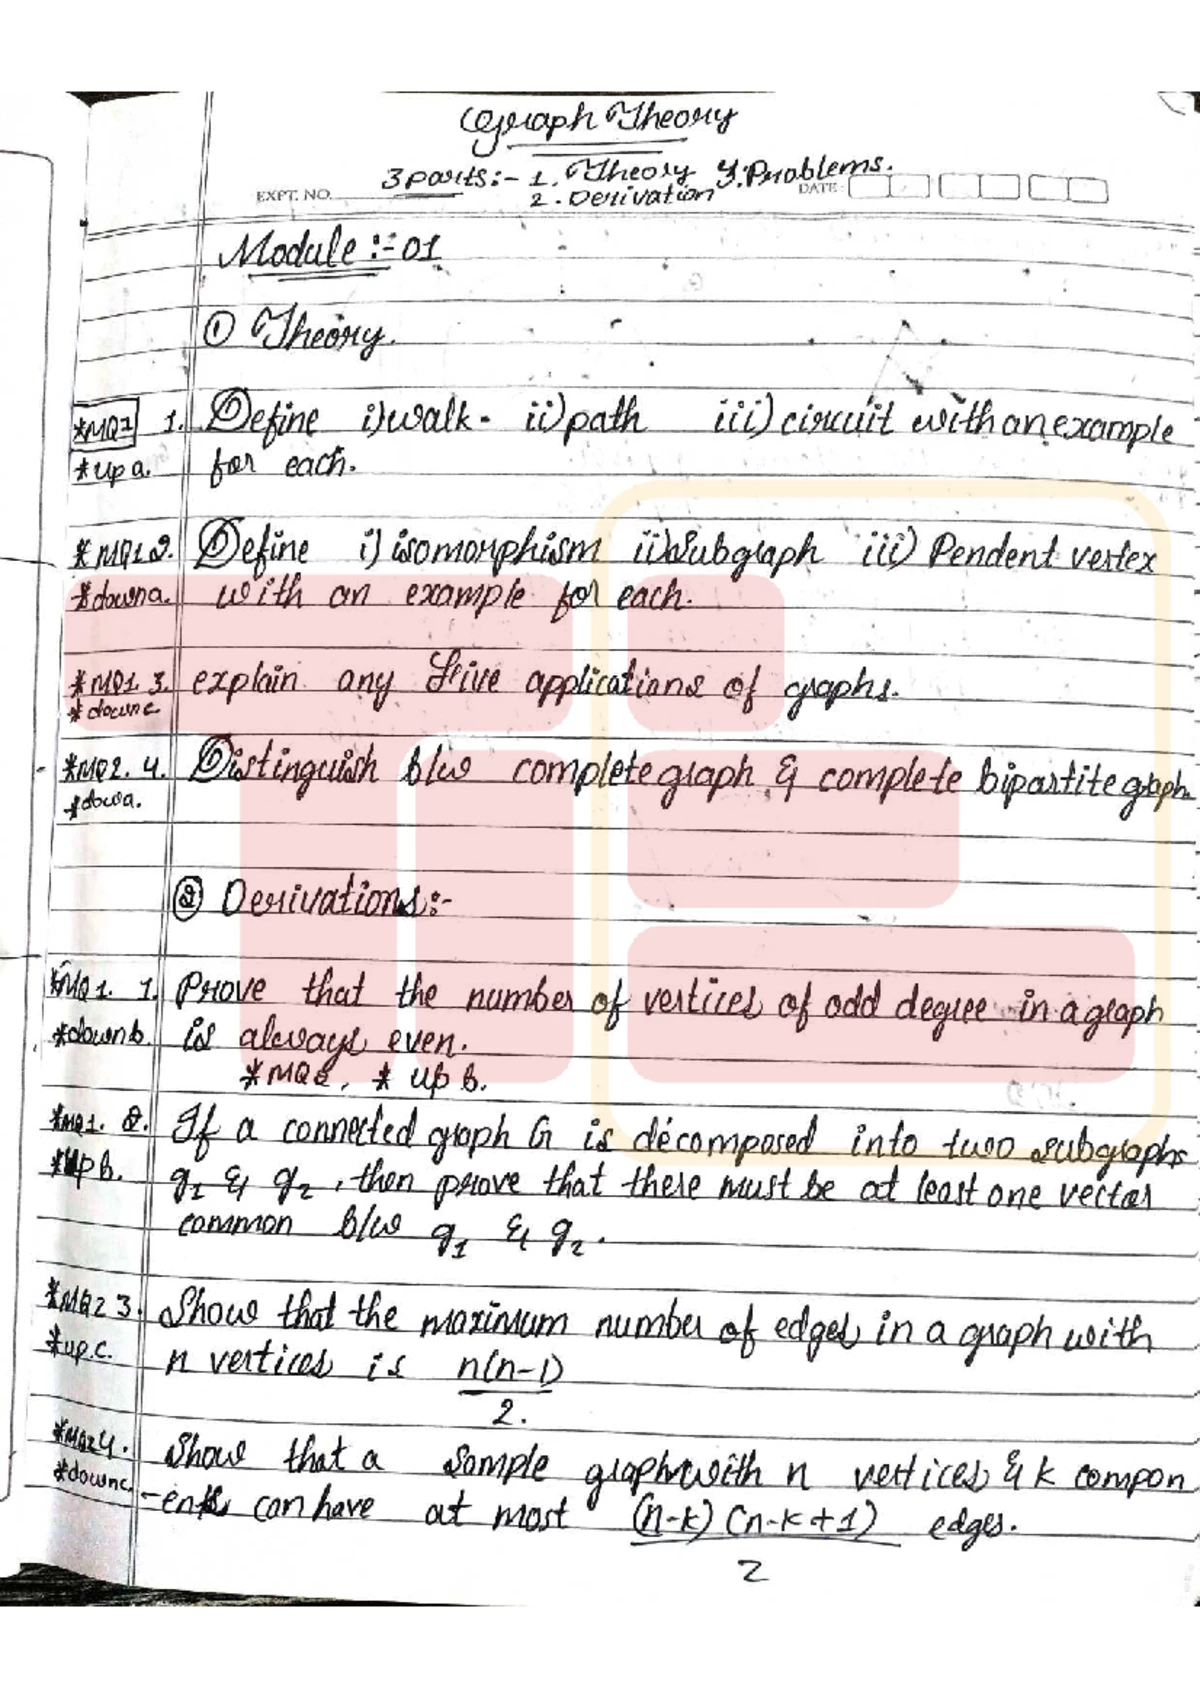 Graph Theory
3 parts:- 1. Theory 3. Problems.
EXPT. NO. 2. Derivation DATE:
Module :- 01
① Theory.
*MQ1 1. Define i) walk - ii) path iii) circuit with an example
*up a. for each.
*MQ1 2. Define i) isomorphism ii) Subgraph iii) Pendent vertex
*down a. with an example for each.
*MQ1 3. explain any five applications of graphs.
*down c
*MQ2. 4. Distinguish b/w complete graph & complete bipartite graph.
*down a.
② Derivations:-
*MQ1. 1. Prove that the number of vertices of odd degree in a graph
*down b. is always even.
*MQ2, * up b.
*MQ1. 2. If a connected graph G is decomposed into two subgraphs
*up b. g1 & g2, then prove that there must be at least one vectar
common b/w g1 & g2.
*MQ2 3. Show that the maximum number of edges in a graph with
*up.c. n vertices is n(n-1)
2.
*MQ2 4. Show that a Sample graph with n vertices & k compon
*down c. -ents can have at most (n-k) (n-k+1) edges.
2